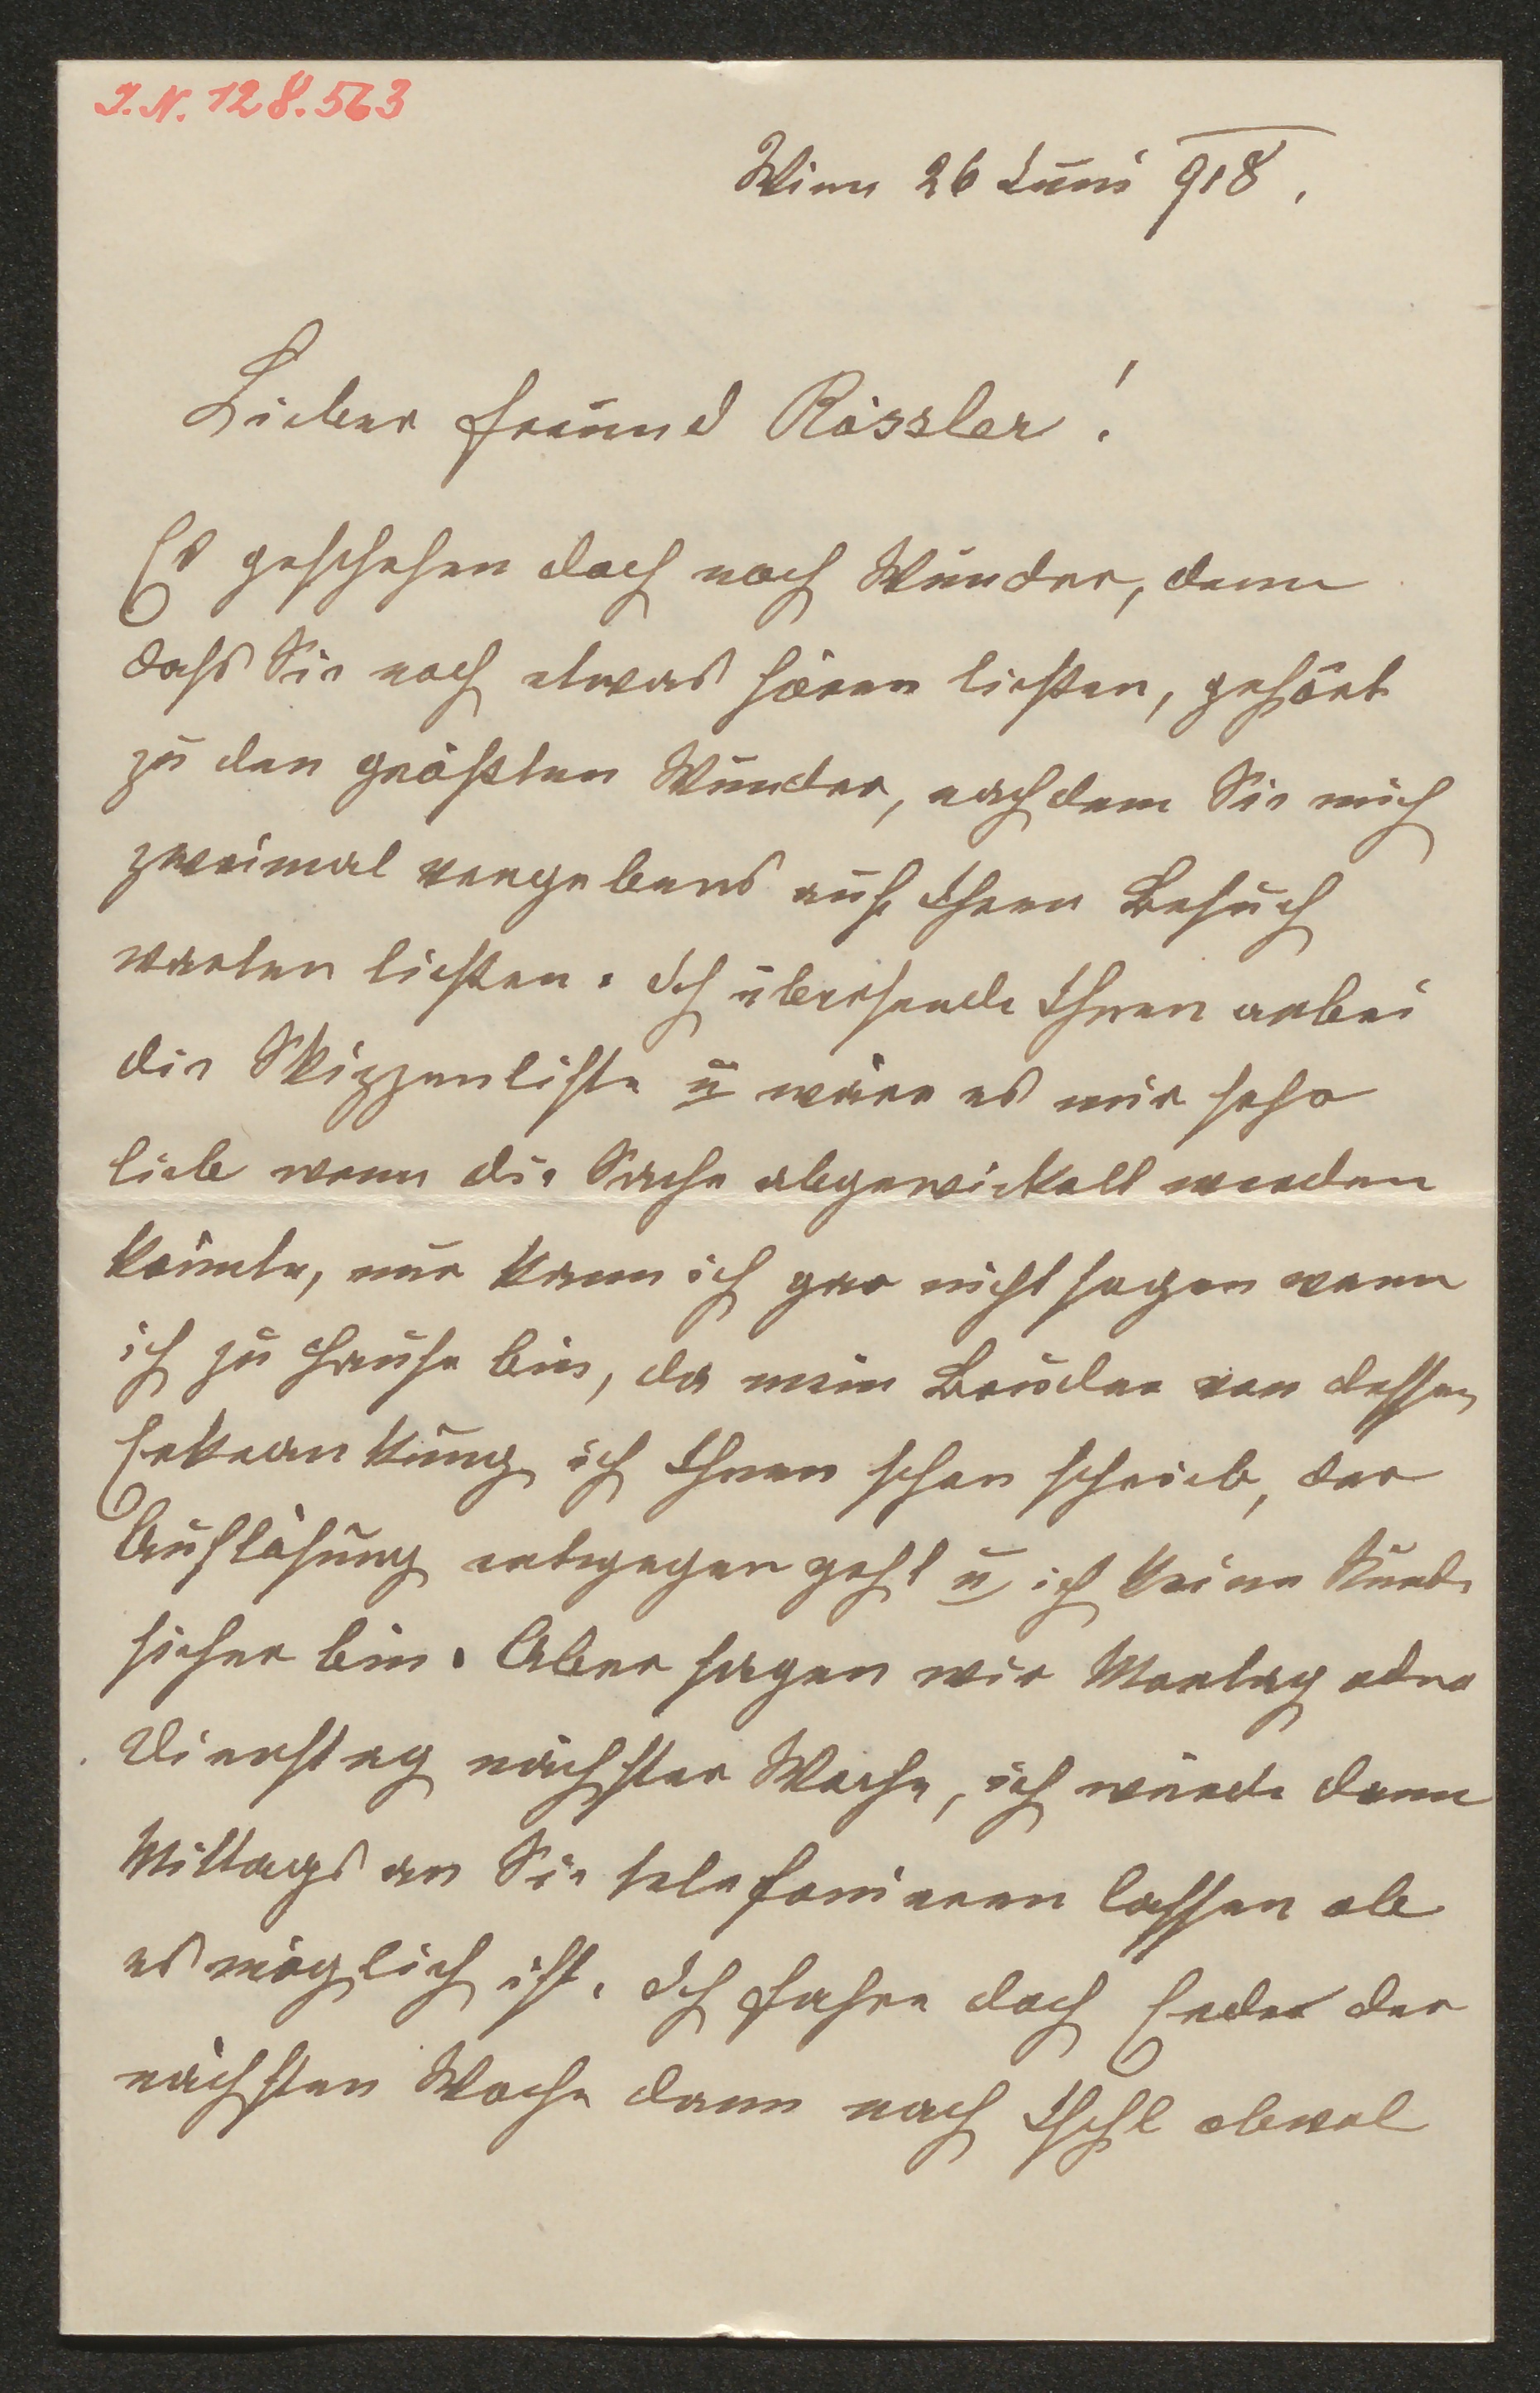 I. N. 128.563
Wien 26 Juni 918.
Lieber Freund Rössler!
Es geschehen doch noch Wunder, denn
dass Sie noch etwas hören ließen, gehört
zu den größten Wunder, nachdem Sie mich
zweimal vergebens auf Ihren Besuch
warten ließen. Ich übersende Ihnen anbei
die Skizzenliste u wäre es mir sehr
lieb wenn die Sache abgewickelt werden
könnte, nur kann ich gar nicht sagen wann
ich zu Hause bin, da mein Bruder von dessen
Erkrankung ich Ihnen schon schrieb, der
Auflösung entgegen geht u ich keine Stunde
sicher bin. Aber sagen wir Montag oder
Dienstag nächster Woche, ich würde dann
Mittags an Sie telefonieren lassen ob
es möglich ist. Ich fahre doch Ende der
nächsten Woche dann nach Ischl obwol